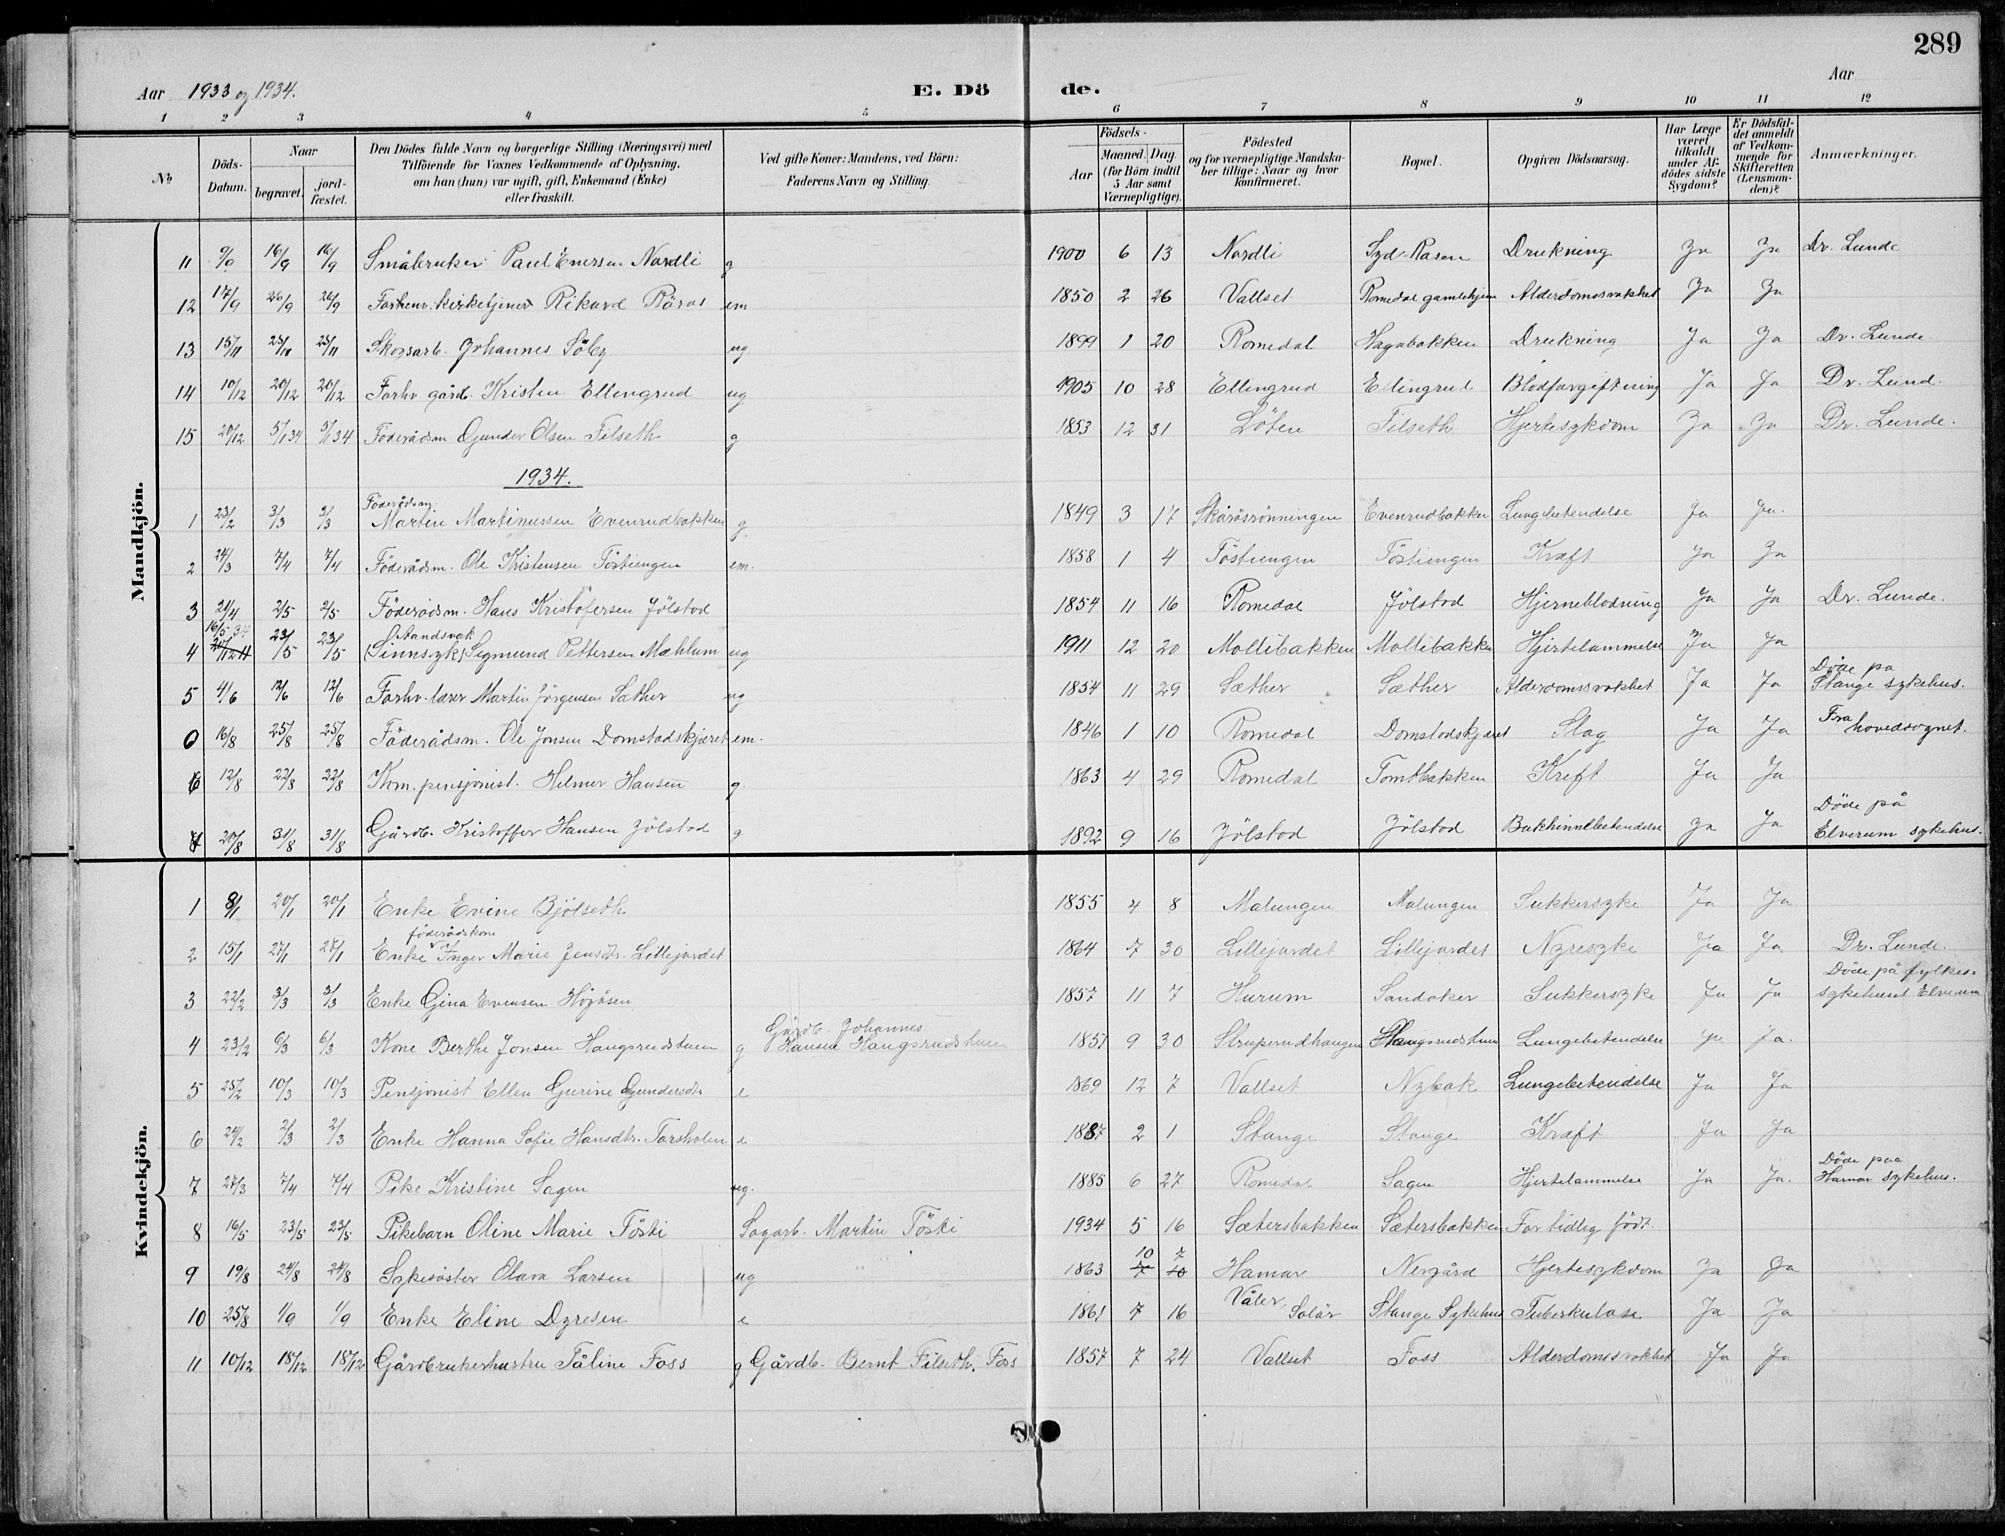 289
Aar 1933 og 1934. E. Dö de. Aar
1 2 3 4 5 6 7 8 9 10 11 12
№
Döds-Datum.
Naar
begravet.
jord-fæstet.
Den Dödes fulde Navn og borgerlige Stilling (Næringsvei) med
Tilföiende for Voxnes Vedkommende af Oplysning,
om han (hun) var ugift, gift, Enkemand (Enke)
eller fraskilt.
Ved gifte Koner: Mandens, ved Börn:
Faderens Navn og Stilling.
Födsels-
Aar
Maaned. Dag.
(for Börn indtil
5 Aar samt
Værnepligtige).
Födested
og for værnepligtige Mandska-
ber tillige: Naar og hvor
konfirmeret.
Bopæl.
Opgiven Dödsaarsag.
Har Læge
været
tilkaldt
under Af-
dödes sidste
Sygdom?
Er Dödsfal-
det anmeldt
af Vedkom-
mende for
Skifteretten
(Lensman-
den)?
Anmærkninger.
Mandkjön.
11 9/9 16/9 16/9 Småbruker Paul Enersen Nordli g 1900 6 13 Nordli Syd-Rasen Drukning Ja Ja Dr. Lunde
12 17/9 26/9 26/9 Forhenv. kirketjener Rikard Röros em 1850 2 26 Vallset Romedal gamlehjem Alderdomssvakhet Ja Ja
13 15/11 25/11 25/11 Skogsarb. Johannes Söby ug 1899 1 20 Romedal Hagabakken Drukning Ja Ja Dr. Lunde
14 10/12 20/12 20/12 Forhv gårdb. Kristen Ellengrud ug 1905 10 28 Ellingrud Ellingrud Blodforgiftning Ja Ja Dr. Lund.
15 20/12 5/1 34 5/1 34 Föderådsm Gunder Olsen Filseth g 1853 12 31 Löten Filseth Hjertesykdom Ja Ja Dr. Lunde.
1934.
1 23/2 3/3 3/3 Föderådsm. Martin Martinussen Evenrudbakken g. 1849 3 17 Skåråsrönningen Evenrudbakken Lungebetendelse Ja Ja.
2 24/3 7/4 7/4 Föderådsm. Ole Kristensen Töstiengen em. 1858 1 4 Töstiengen Töstiengen Kræft Ja Ja
3 21/4 2/5 2/5 Föderådsm. Hans Kristofersen Jölstad 1854 11 16 Romedal Jölstad Hjerneblödning Ja Ja Dr. Lunde.
4 16/5 34 23/5 23/5 (Sinnsyk) Åandsvak Sigmund Pettersen Mæhlum ug 1911 12 20 Mollibakken Mollibakken Hjertelammelse Ja Ja
5 4/6 12/6 12/6 Forhv. lærer Martin Jörgensen Sæther ug 1854 11 29 Sæther Sæther Alderdomssvakhet Ja Ja Döde på Stange sykehus.
0 16/8 25/8 25/8 Föderådsm. Ole Jonsen Domstadskjæret em. 1846 1 10 Romedal Domstadskjæret Slag Ja Ja Fra hovedsognet.
6 12/8 22/8 22/8 Kom. pensjonist. Helmer Hansen g. 1863 4 29 Romedal Tomtbakken Kreft Ja Ja
7 20/8 31/8 31/8 Gårdb. Kristoffer Hansen Jölstad g 1892 9 16 Jölstad Jölstad Bukhinnebetendelse Ja Ja Döde på Elverum sykehus.
Kvindekjön.
1 8/1 20/1 20/1 Enke Evine Bjölseth 1855 4 8 Malungen Malungen Sukkersyke Ja Ja
2 15/1 27/1 27/1 Enke föderådskone Inger Marie Jensdtr. Lillejordet 1864 7 30 Lillejordet Lillejordet Nyresyke Ja Ja. Dr. Lunde.
3 22/2 3/3 3/3 Enke Gina Evensen Höyåsen 1857 11 7 Hurum Sandaker Sukkersyke Ja Ja Döde på fylkes-sykehuset Elverum
4 23/2 6/3 6/3 Kone Berthe Jonsen Haugsrudstuen g Gårdb. Johannes Hansen Haugsrudstuen 1851 9 30 Struperudhaugen Haugsrudstuen Lungebetendelse Ja Ja.
5 25/2 10/3 10/3 Pensjonist Ellen Gurine Gundersdtr e 1869 12 7 Vallset Nybak Lungebetendelse Ja Ja
6 24/2 2/3 2/3 Enke Hanna Sofie Hansdtr. Torsholen e 1887 2 1 Stange Stange Kræft Ja Ja
7 27/3 7/4 7/4 Pike Kristine Sagen ug. 1885 6 27 Romedal Sagen Hjertelammelse Ja Ja. Döde paa Hamar sykehus.
8 16/5 23/5 23/5 Pikebarn Oline Marie Tösti Sagarb. Martin Tösti 1934 5 16 Sætersbakken Sætersbakken For tidlig födt.
9 19/8 24/8 24/8 Sykesöster Olava Larsen ug 1863 10 7 Hamar Nergård Hjertesykdom Ja Ja
10 25/8 1/9 1/9 Enke Eline Dyresen e 1861 7 16 Våler, Solör Stange Sykehus Tuberkulose Ja Ja
11 10/12 18/12 18/12 Gårdbrukerhustru Tåline Foss g Gårdb. Bernt Filseth. Foss 1857 7 24 Vallset Foss Alderdomssvakhet Ja Ja